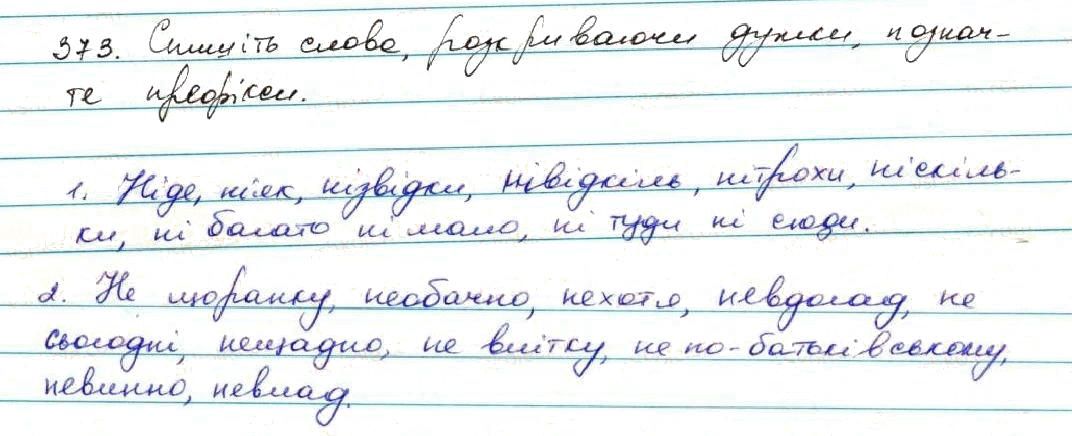 373. Спишіть слова, розкриваючи дужки, познач-
те префікси.
1. Ніде, ніяк, нізвідки, нівідкіль, нітрохи, ніскіль-
ки, ні багато ні мало, ні туди ні сюди.
2. Не щоранку, необачно, нехотя, невдогад, не
сьогодні, нещадно, не влітку, не по-батьківському,
невинно, невлад.